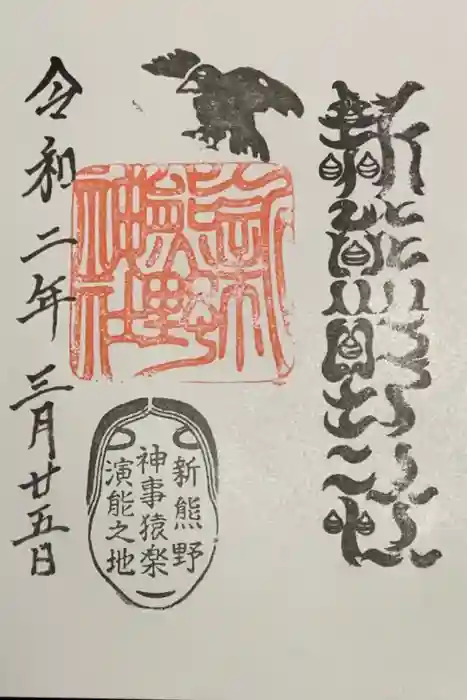 新熊野神社
新熊野神社
新熊野
神事猿楽
演能之地
令和二年三月廿五日